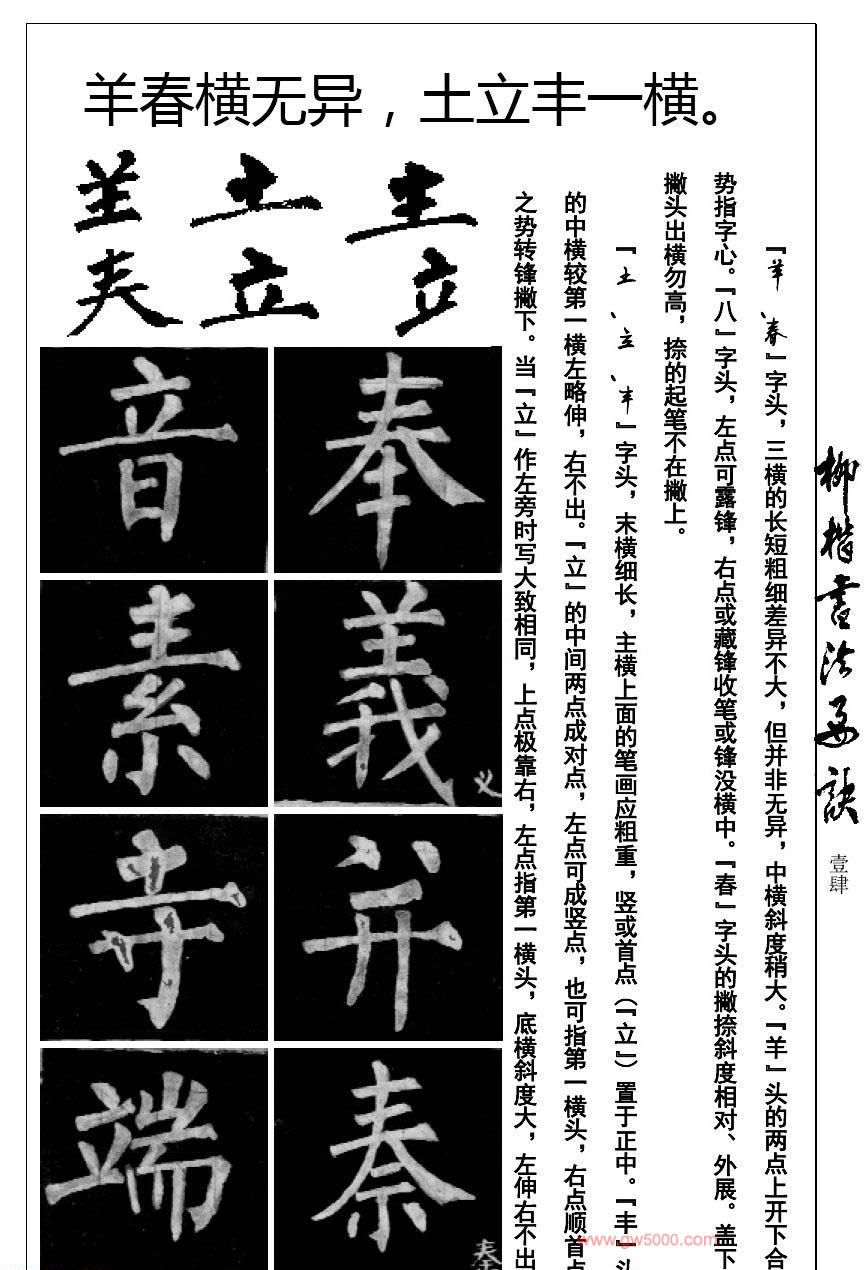 羊春横无异，土立丰一横。
『羊、春』字头，三横的长短粗细差异不大，但并非无异，中横斜度稍大。『羊』头的两点上开下合
势指字心。『八』字头，左点可露锋，右点或藏锋收笔或锋没横中。『春』字头的撇捺斜度相对、外展。盖下
撇头出横勿高，捺的起笔不在撇上。
『土、立、丰』字头，末横细长，主横上面的笔画应粗重，竖或首点（『立』）置于正中。『丰』头
的中横较第一横左略伸，右不出。『立』的中间两点成对点，左点可成竖点，也可指第一横头，右点顺首点
之势转锋撇下。当『立』作左旁时写大致相同，上点极靠右，左点指第一横头，底横斜度大，左伸右不出
土
立
立
奉
音
義
义
素
并
寺
秦
端
奉
柳楷书法要诀
壹肆
www.gw5000.com